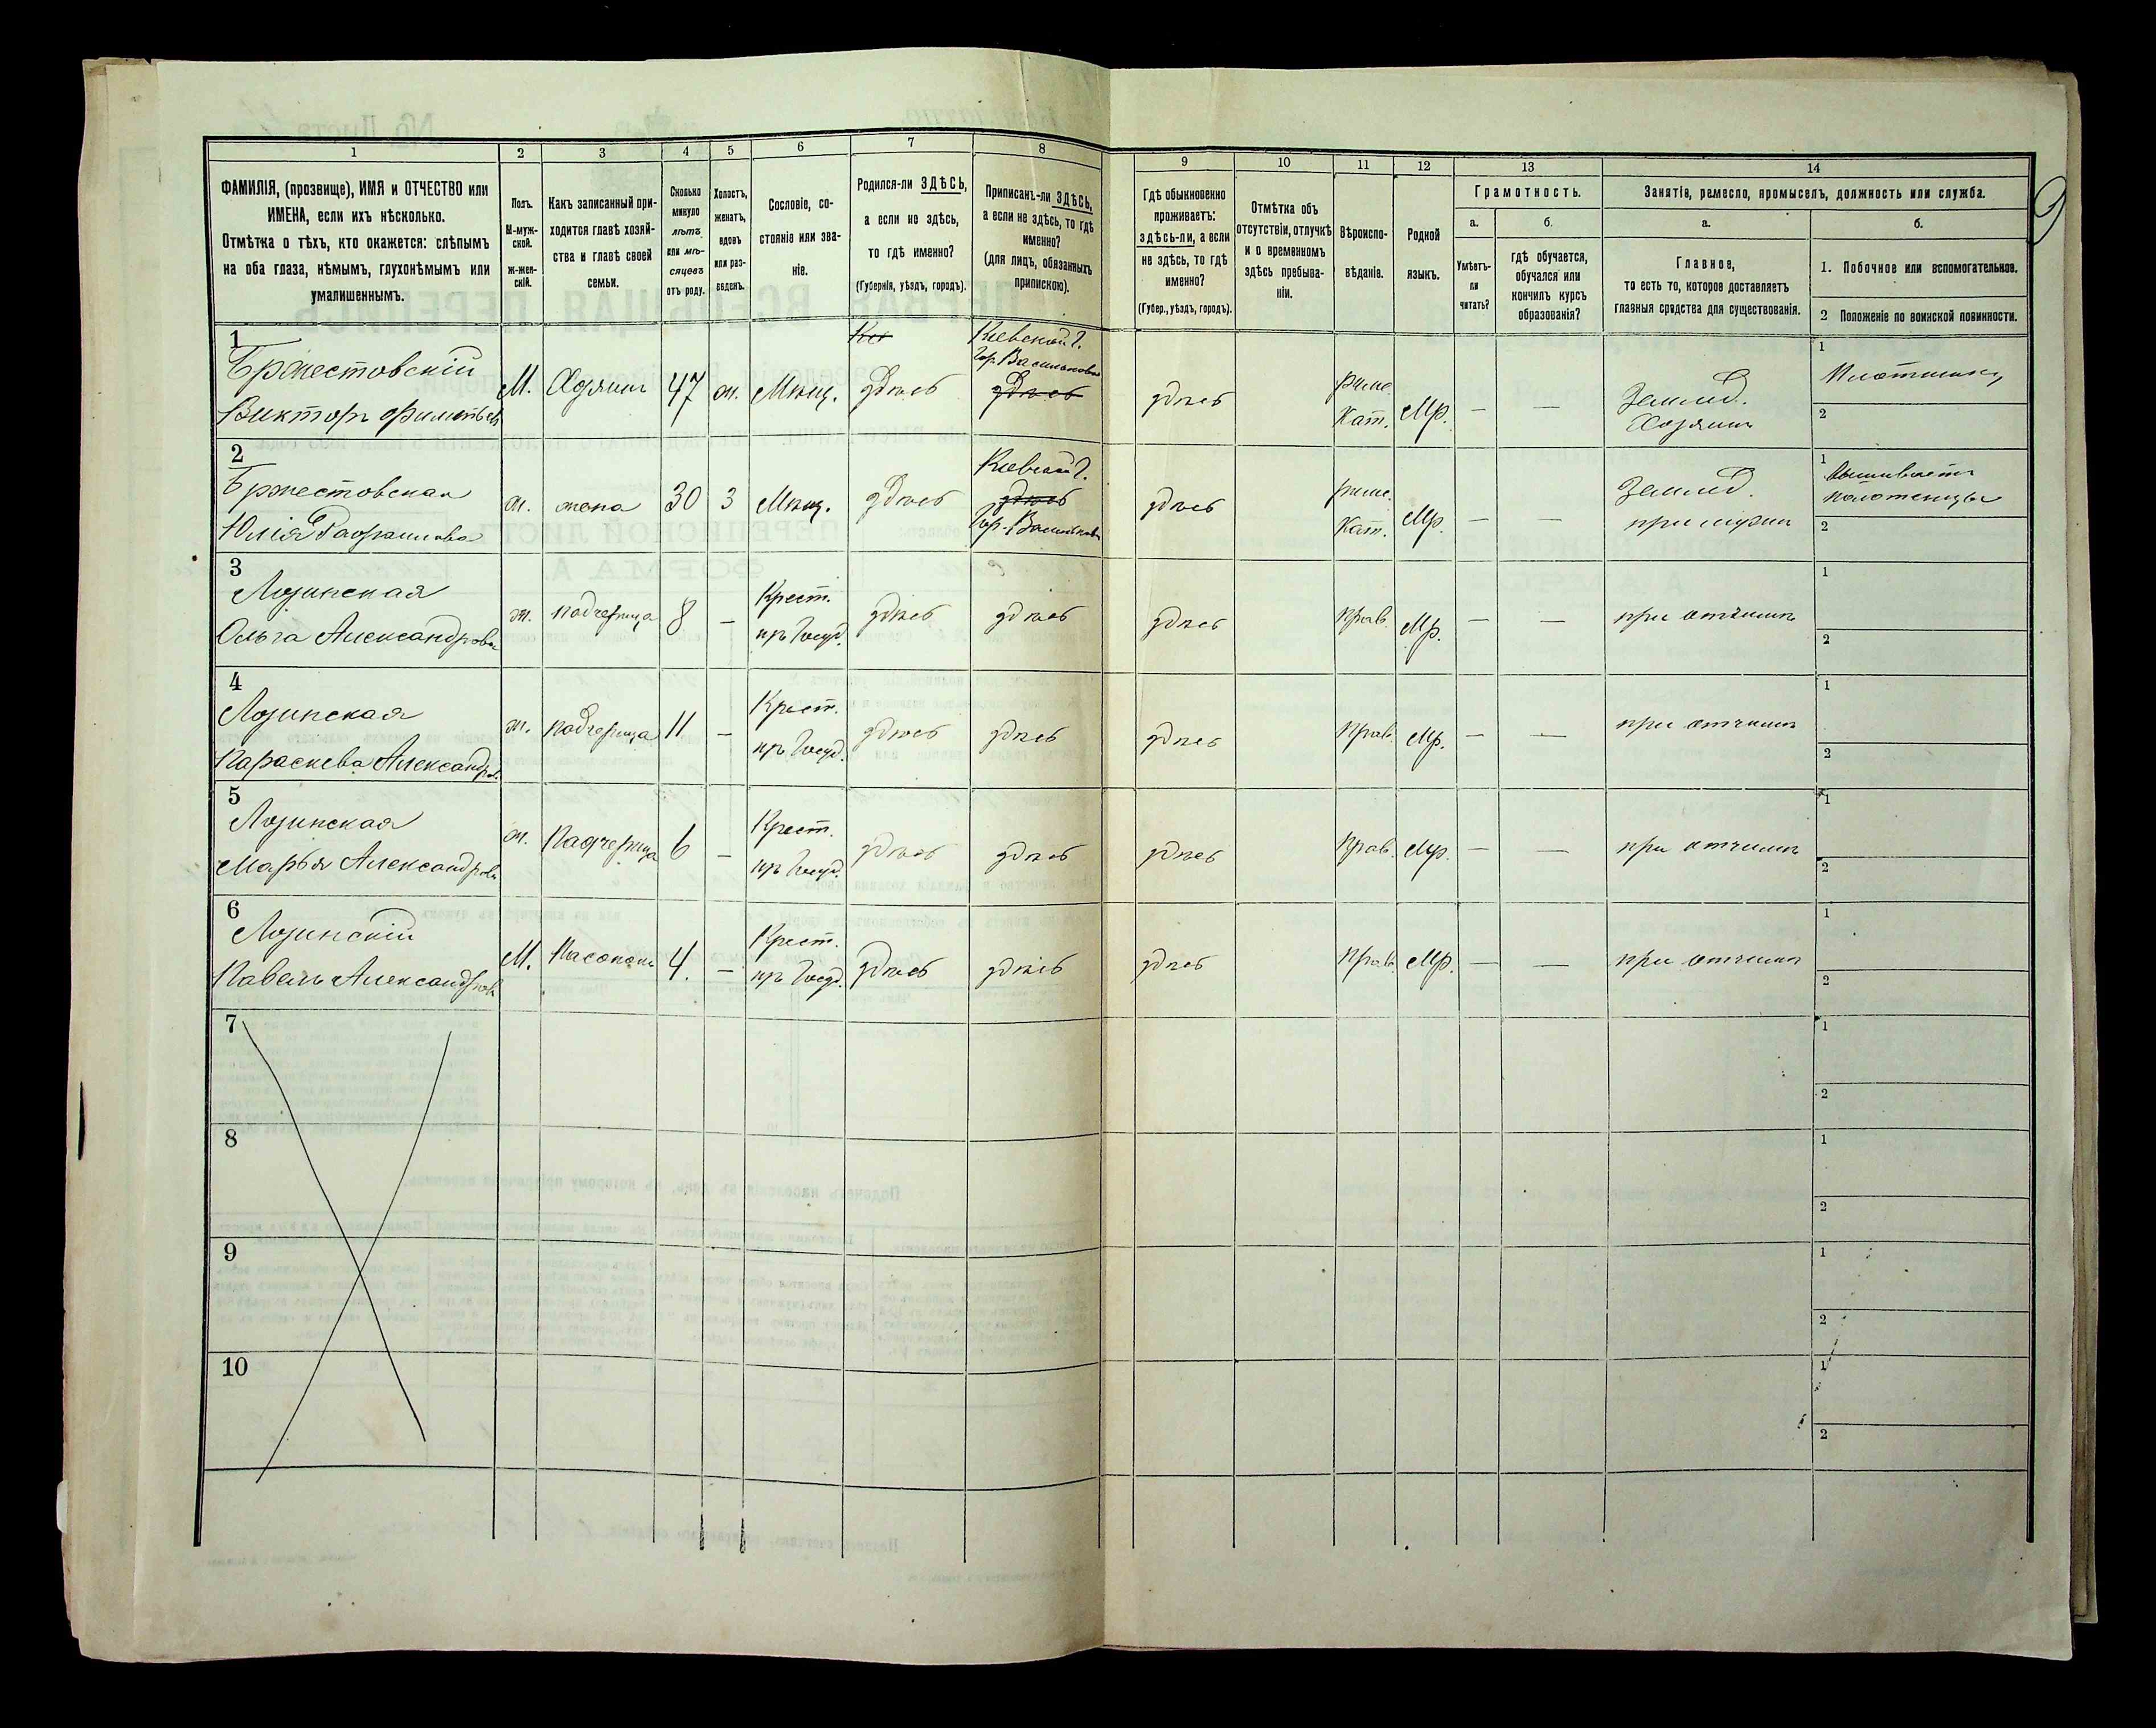 1 2 3 4 5 6 7 8 9 10 11 12 13 14
ФАМИЛІЯ, (прозвище), ИМЯ и ОТЧЕСТВО или
ИМЕНА, если ихъ нѣсколько.
Отмѣтка о тѣхъ, кто окажется: слѣпымъ
на оба глаза, нѣмымъ, глухонѣмымъ или
умалишеннымъ.
Полъ.
М-муж-
ской.
ж-жен-
скій.
Какъ записанный при-
ходится главѣ хозяй-
ства и главѣ своей
семьи.
Сколько
минуло
лѣтъ
или мѣ-
сяцевъ
отъ роду.
Холостъ,
женатъ,
вдовъ
или раз-
веденъ.
Сословіе, со-
стояніе или зва-
ніе.
Родился-ли ЗДѢСЬ,
а если не здѣсь,
то гдѣ именно?
(Губернія, уѣздъ, городъ).
Приписанъ-ли ЗДѢСЬ,
а если не здѣсь, то гдѣ
именно?
(для лицъ, обязанныхъ
припискою).
Гдѣ обыкновенно
проживаетъ:
здѣсь-ли, а если
не здѣсь, то гдѣ
именно?
(Губер., уѣздъ, городъ).
Отмѣтка объ
отсутствіи, отлучкѣ
и о временномъ
здѣсь пребыва-
ніи.
Вѣроиспо-
вѣданіе.
Родной
языкъ.
Грамотность.
а.
Умѣетъ-
ли
читать?
б.
гдѣ обучается,
обучался или
кончилъ курсъ
образованія?
Занятіе, ремесло, промыселъ, должность или служба.
а.
Главное,
то есть то, которое доставляетъ
главныя средства для существованія.
б.
1. Побочное или вспомогательное.
2 Положеніе по воинской повинности.
1
Бржестовскій
Викторъ
М. Хозяинъ 47 ж. Мѣщ.
здѣсь
Кіевской г.
гор. Васильковъ
здѣсь
здѣсь
Римс.
Кат. Мр. — —
Землед.
Хозяинъ
1 Плотникъ
2
2
Бржестовская
Юлія
ж. жена 30 з Мѣщ. здѣсь
Кіевской г.
здѣсь
гор. Васильковъ
здѣсь
Римс.
Кат. Мр. — —
Землед.
при мужѣ
1 Вышиваетъ
полотенцы
2
3
Лозинская
Ольга Александрова
ж. падчерица 8 —
Крест.
пр. Госуд.
здѣсь здѣсь здѣсь Прав. Мр. — — при отчимѣ
1
2
4
Лозинская
Параскева Александров.
ж. падчерица 11 —
Крест.
пр. Госуд.
здѣсь здѣсь здѣсь Прав. Мр. — — при отчимѣ
1
2
5
Лозинская
Марья Александрова
ж. Падчерица 6 —
Крест.
пр. Госуд.
здѣсь здѣсь здѣсь Прав. Мр. — — при отчимѣ
1
2
6
Лозинскій
Павелъ Александровъ
М. Пасонокъ 4. —
Крест.
пр. Госуд.
здѣсь здѣсь здѣсь Прав. Мр. — — при отчимѣ
1
2
7
1
2
8
1
2
9
1
2
10
1
2